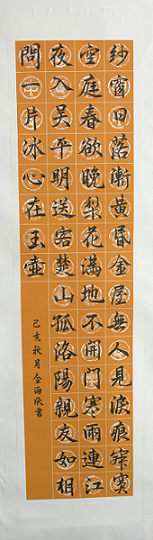 紗窗日落漸黃昏金屋無人見淚痕寂寞
空庭春欲晚梨花滿地不開門寒雨連江
夜入吳平明送客楚山孤洛陽親友如相
問一片冰心在玉壺
己亥秋月金雨欣書